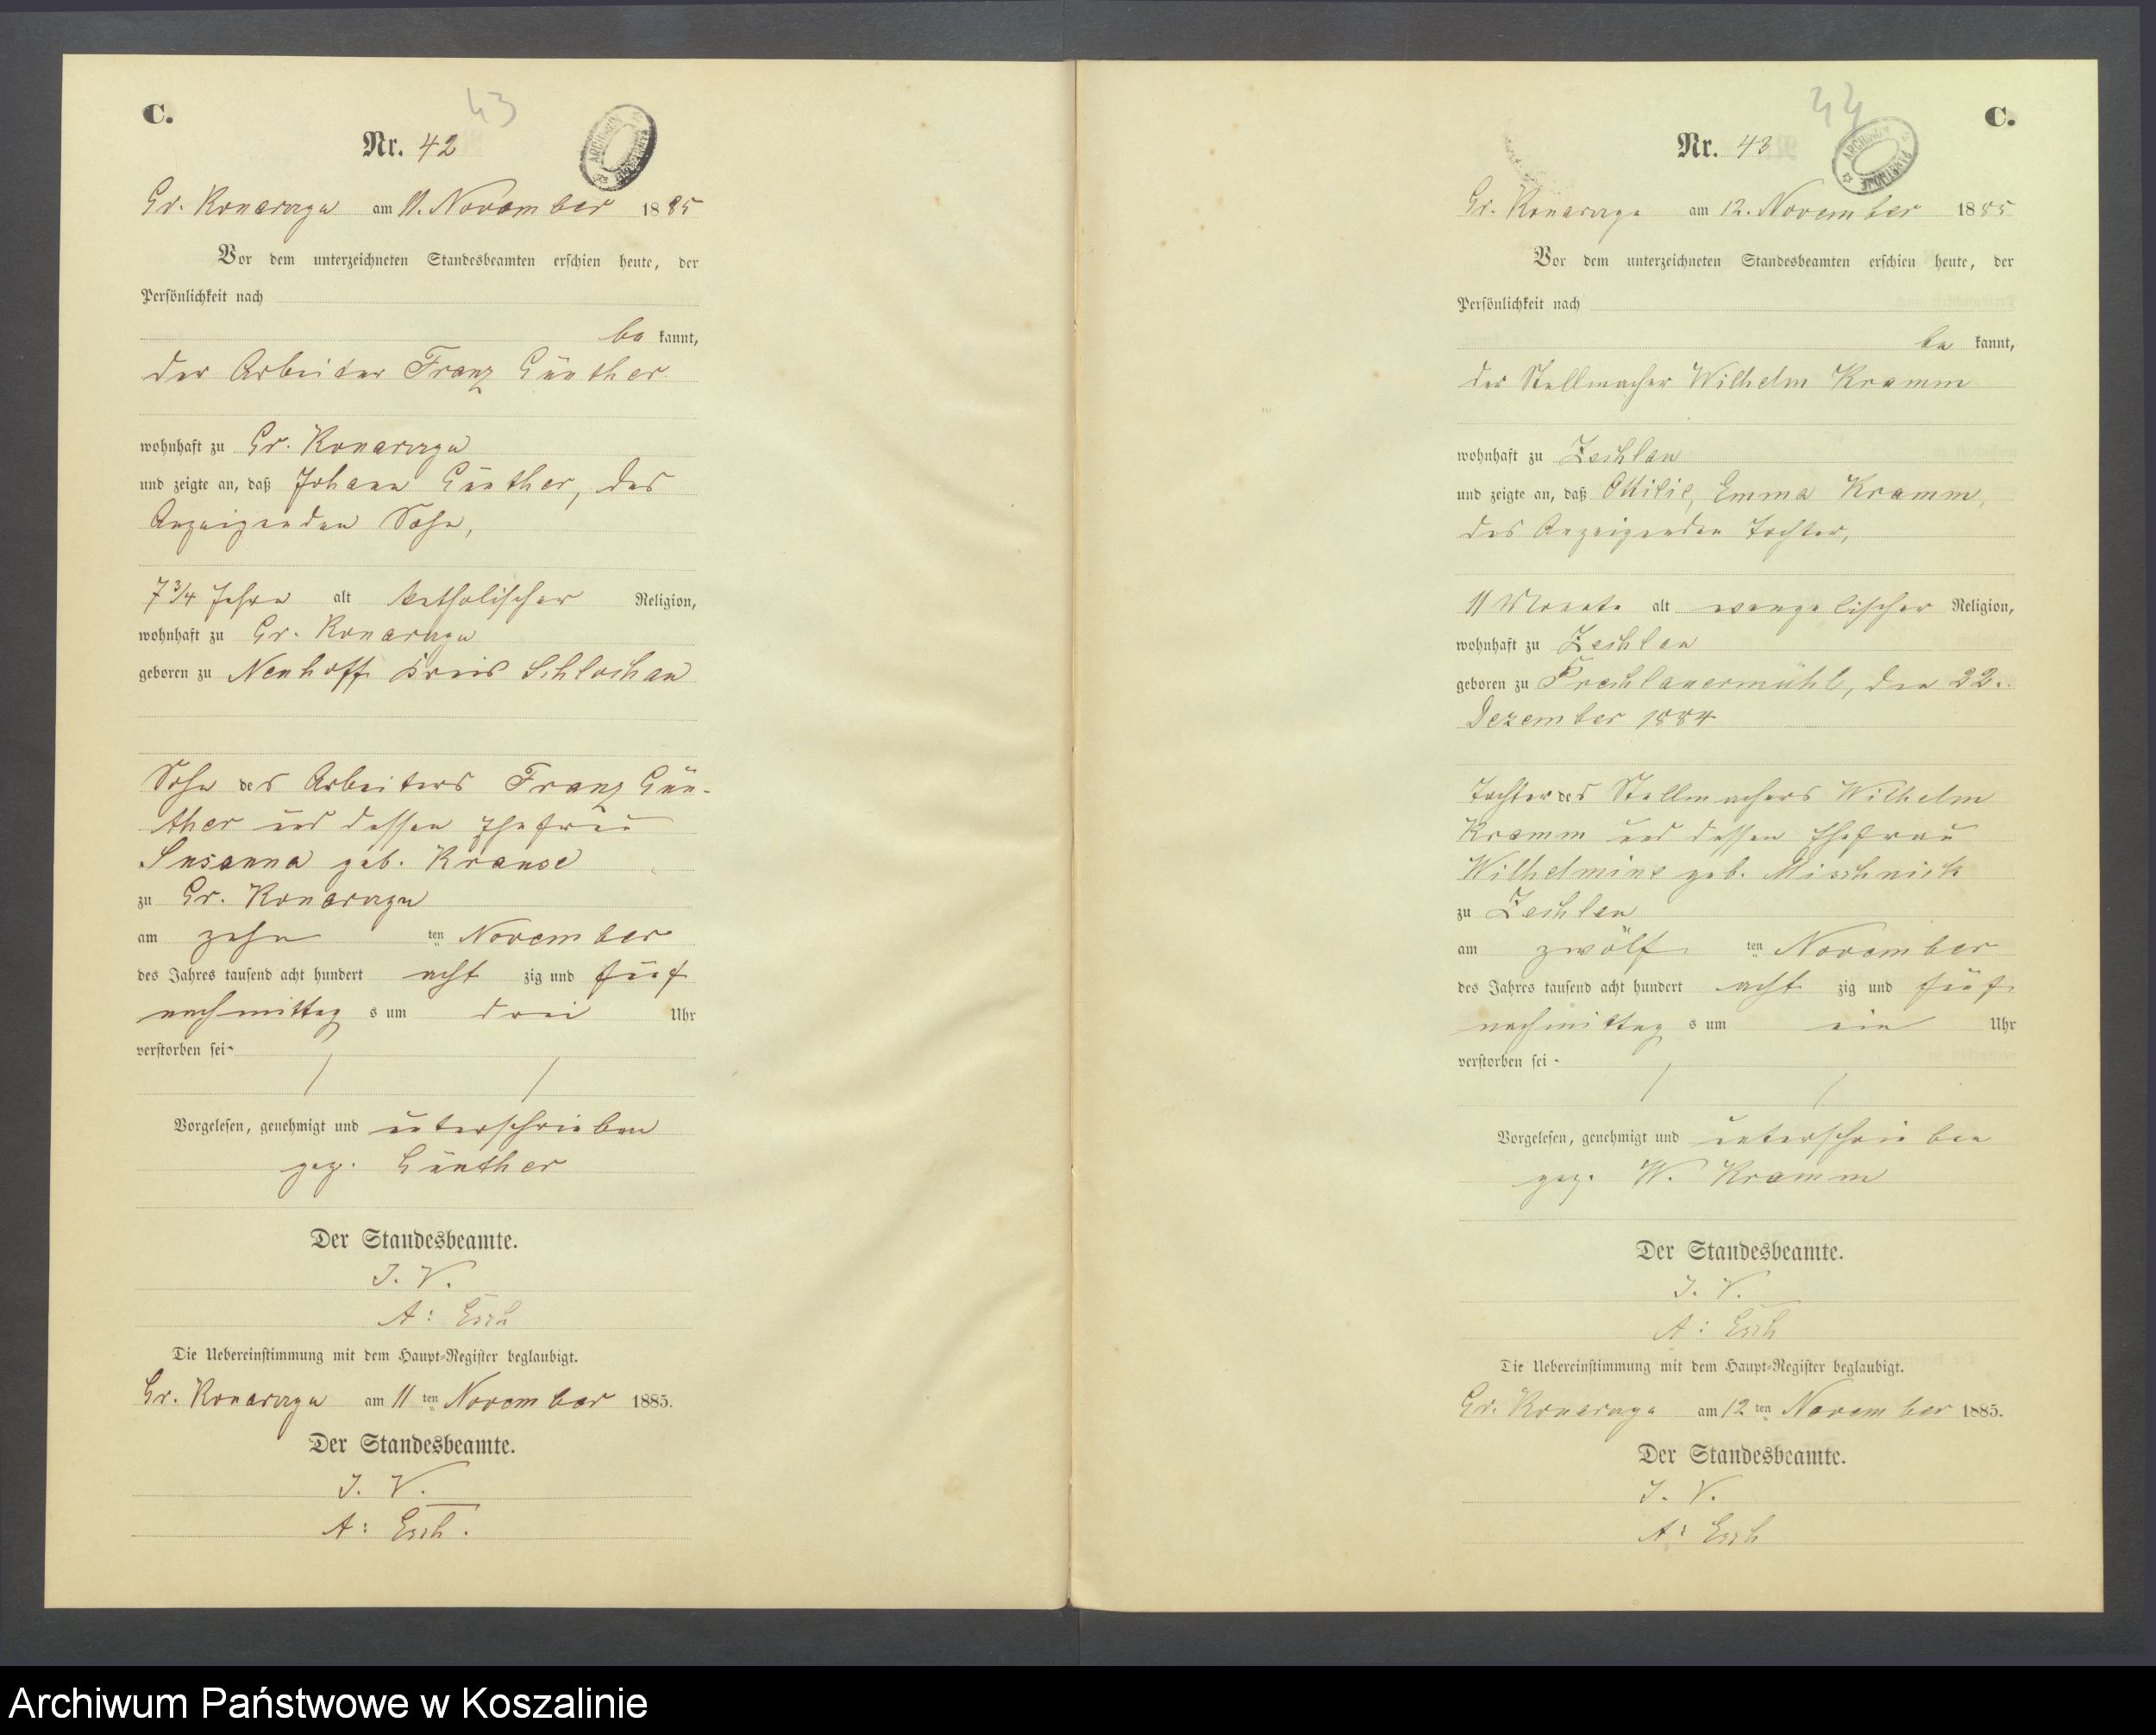 C.
43
Nr. 42
ARCHIWUM PAŃSTWOWE
Gr. Konarczyn am 11. November 1885
Vor dem unterzeichneten Standesbeamten erschien heute, der
Persönlichkeit nach
be kannt,
der Arbeiter Franz Günther
wohnhaft zu Gr. Konarczyn
und zeigte an, daß Johann Günther, des
Anzeigenden Sohn,
7 3/4 Jahre alt katholischer Religion,
wohnhaft zu Gr. Konarczyn
geboren zu Neuhoff Kreis Schlochau
Sohn des Arbeiters Franz Gün-
ther und dessen Ehefrau
Susanna geb. Krause
zu Gr. Konarczyn
am zehn ten November
des Jahres tausend acht hundert acht zig und fünf
nachmittag s um drei Uhr
verstorben sei
Vorgelesen, genehmigt und unterschrieben
gez. Günther
Der Standesbeamte.
J. V.
A: Esch
Die Uebereinstimmung mit dem Haupt-Register beglaubigt.
Gr. Konarczyn am 11 ten November 1885.
Der Standesbeamte.
J. V.
A: Esch.
44
C.
Nr. 43
ARCHIWUM PAŃSTWOWE
Gr. Konarczyn am 12. November 1885
Vor dem unterzeichneten Standesbeamten erschien heute, der
Persönlichkeit nach
be kannt,
der Stellmacher Wilhelm Kramm
wohnhaft zu Zechlau
und zeigte an, daß Ottilie, Emma Kramm,
des Anzeigenden Tochter,
11 Monate alt evangelischer Religion,
wohnhaft zu Zechlau
geboren zu Prechlauermühl, den 22.
Dezember 1884
Tochter des Stellmachers Wilhelm
Kramm und dessen Ehefrau
Wilhelmine geb. Mischnick
zu Zechlau
am zwölf ten November
des Jahres tausend acht hundert acht zig und fünf
nachmittag s um ein Uhr
verstorben sei
Vorgelesen, genehmigt und unterschrieben
gez. W. Kramm
Der Standesbeamte.
J. V.
A: Esch
Die Uebereinstimmung mit dem Haupt-Register beglaubigt.
Gr. Konarczyn am 12 ten November 1885.
Der Standesbeamte.
J. V.
A: Esch
Archiwum Państwowe w Koszalinie